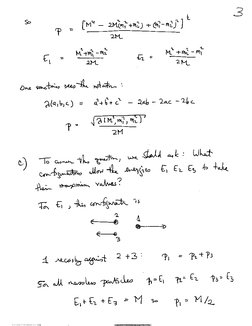 3
so p = [M⁴ - 2M²(m₁²+m₂²) + (m₁²-m₂²)²]^½ / 2M
E₁ = M²+m₁²-m₂² / 2M E₂ = M²+m₂²-m₁² / 2M
One sometimes sees the notation:
λ(a,b,c) = a²+b²+c² - 2ab - 2ac - 2bc
p = √λ(M²,m₁²,m₂²) / 2M
c) To answer the question, we should ask: What
configurations allow the energies E₁ E₂ E₃ to take
their maximum values?
For E₁, this configuration is
2 1
3
1 recoiling against 2+3: p₁ = p₂+p₃
For all massless particles p₁=E₁ p₂=E₂ p₃=E₃
E₁+E₂+E₃ = M so p₁ = M/2